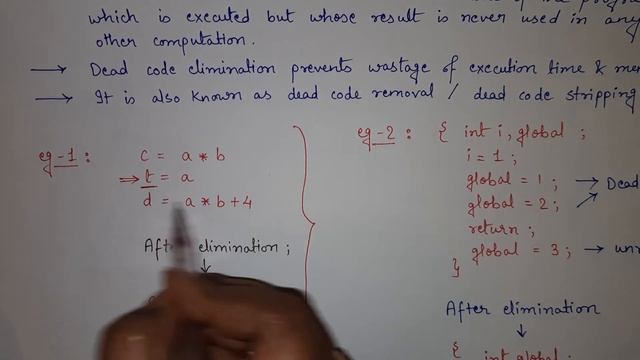 which is executed but whose result is never used in any
other computation.
→ Dead code elimination prevents wastage of execution time &
→ It is also known as dead code removal / dead code stripping
eg-1 : c = a * b
⇒ t = a
d = a * b + 4
After elimination ;
↓
eg-2 : { int i, global ;
i = 1 ;
global = 1 ; → Dead
global = 2 ; ↗
return ;
global = 3 ; →
}
After elimination
↓
{ int global